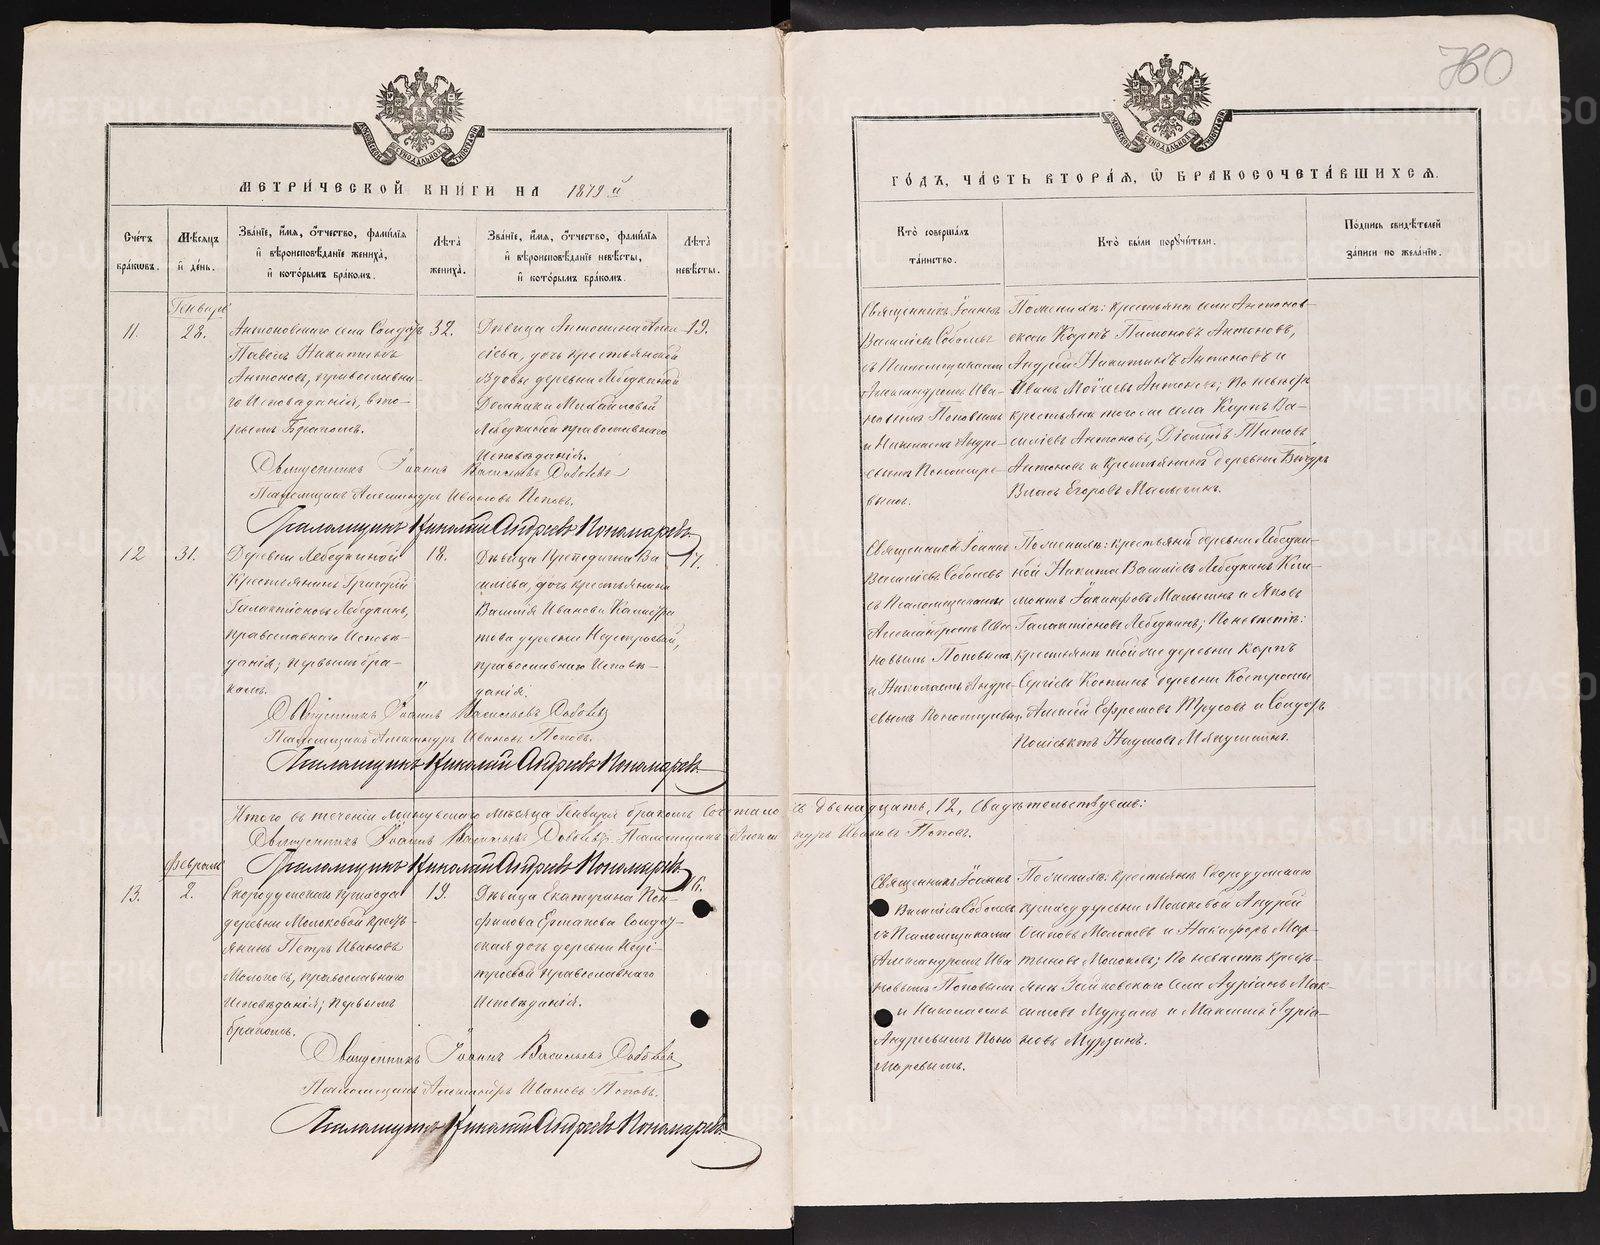 МЕТРИ́ЧЕСКОЙ КНИ́ГИ НА 1879й
Сче́тъ бра́кѡвъ.
Мѣ́сяцъ и҆ де́нь.
Зва́нїе, и҆́мѧ, ѻ҆́тчество, фами́лїѧ и҆ вѣроисповѣ́данїе жениха̀, и҆ кото́рымъ бра́комъ.
Лѣ́та жениха̀.
Зва́нїе, и҆́мѧ, ѻ҆́тчество, фами́лїѧ и҆ вѣроисповѣ́данїе невѣ́сты, и҆ кото́рымъ бра́комъ.
Лѣ́та невѣ́сты.
Генварь
11.
28.
Антоновскаго села Солдатъ
Павелъ Никитинъ
Антоновъ, православна-
го Исповѣданія, вто-
рымъ бракомъ.
32.
Дѣвица
сіева, дочь крестьянской
Вдовы деревни Лебедкиной
Домники Михайловой
Лебедкиной православнаго
Исповѣданія.
19.
Священникъ Іоаннъ Васильевъ Соболевъ
Псаломщикъ Александръ Ивановъ Поповъ.
Псаломщикъ Николай Андреевъ Пономаревъ
12
31.
Деревни Лебедкиной
Крестьянинъ Григорій
Галактіоновъ Лебедкинъ,
православнаго Исповѣ-
данія; первымъ бра-
комъ.
18.
Дѣвица Ва-
силіева, дочь крестьянина
Василія Иванова
деревни
православнаго Исповѣ-
данія.
17.
Священникъ Іоаннъ Васильевъ Соболевъ
Псаломщикъ Александръ Ивановъ Поповъ.
Псаломщикъ Николай Андреевъ Пономаревъ
Итого въ теченіи минувшаго мѣсяца Генваря бракомъ сочеталось двенадцать, 12, свидѣтельствуемъ:
Священникъ Іоаннъ Васильевъ Соболевъ Псаломщикъ Александръ Ивановъ Поповъ.
Псаломщикъ Николай Андреевъ Пономаревъ
Февраль
13.
2.
Скородумскаго прихода
деревни Молоковой крест-
янинъ Петръ Ивановъ
Молоковъ, православнаго
Исповѣданія; первымъ
бракомъ.
19.
Дѣвица Екатерина
Ермакова солдат-
ская дочь деревни
православнаго
Исповѣданія.
16.
Священникъ Іоаннъ Васильевъ Соболевъ
Псаломщикъ Александръ Ивановъ Поповъ.
Псаломщикъ Николай Андреевъ Пономаревъ
780
ГО́ДЪ, ЧА́СТЬ ВТОРА́Ѧ, Ѽ БРАКОСОЧЕТА́ВШИХСѦ.
Кто̀ соверша́лъ та́инство.
Кто̀ бы́ли порꙋчи́тели.
По́дпись свидѣ́телей за́писи по жела́нїю.
Священникъ Іоаннъ
Василіевъ Соболевъ
съ Псаломщиками
Александромъ Ива-
новымъ Поповымъ
и Николаемъ Андре-
евымъ Пономаре-
вымъ.
По женихѣ: крестьяне села Антонов-
скаго Карпъ Пимоновъ Антоновъ,
Андрей Никитинъ Антоновъ и
Иванъ Моѵсеевъ Антоновъ; по невѣстѣ
крестьяне того же села Карпъ Ва-
силіевъ Антоновъ, Титовъ
Антоновъ и крестьянинъ деревни
Власъ Егоровъ Малыгинъ.
Священникъ Іоаннъ
Василіевъ Соболевъ
съ Псаломщиками
Александромъ Ива-
новымъ Поповымъ
и Николаемъ Андре-
евымъ Пономаревымъ.
По женихѣ: крестьяне деревни Лебедки-
ной Никита Василіевъ Лебедкинъ Кли-
ментъ Іакинфовъ Малыгинъ и Яковъ
Галактіоновъ Лебедкинъ; по невѣстѣ:
крестьяне той же деревни Карпъ
Сергіевъ деревни Костромы
Алексей Ефремовъ Трусовъ и солдатъ
Наумовъ
Священникъ Іоаннъ
Василіевъ Соболевъ
съ Псаломщиками
Александромъ Ива-
новымъ Поповымъ
и Николаемъ
Андреевымъ Поно-
маревымъ.
По женихѣ: крестьяне Скородумскаго
прихода деревни Молоковой Андрей
Осиповъ Молоковъ и Никифоръ Мар-
тыновъ Молоковъ; по невѣстѣ кресть-
яне Зайковскаго села Адріанъ Мак-
симовъ Мурзинъ и Максимъ Адріа-
новъ Мурзинъ.